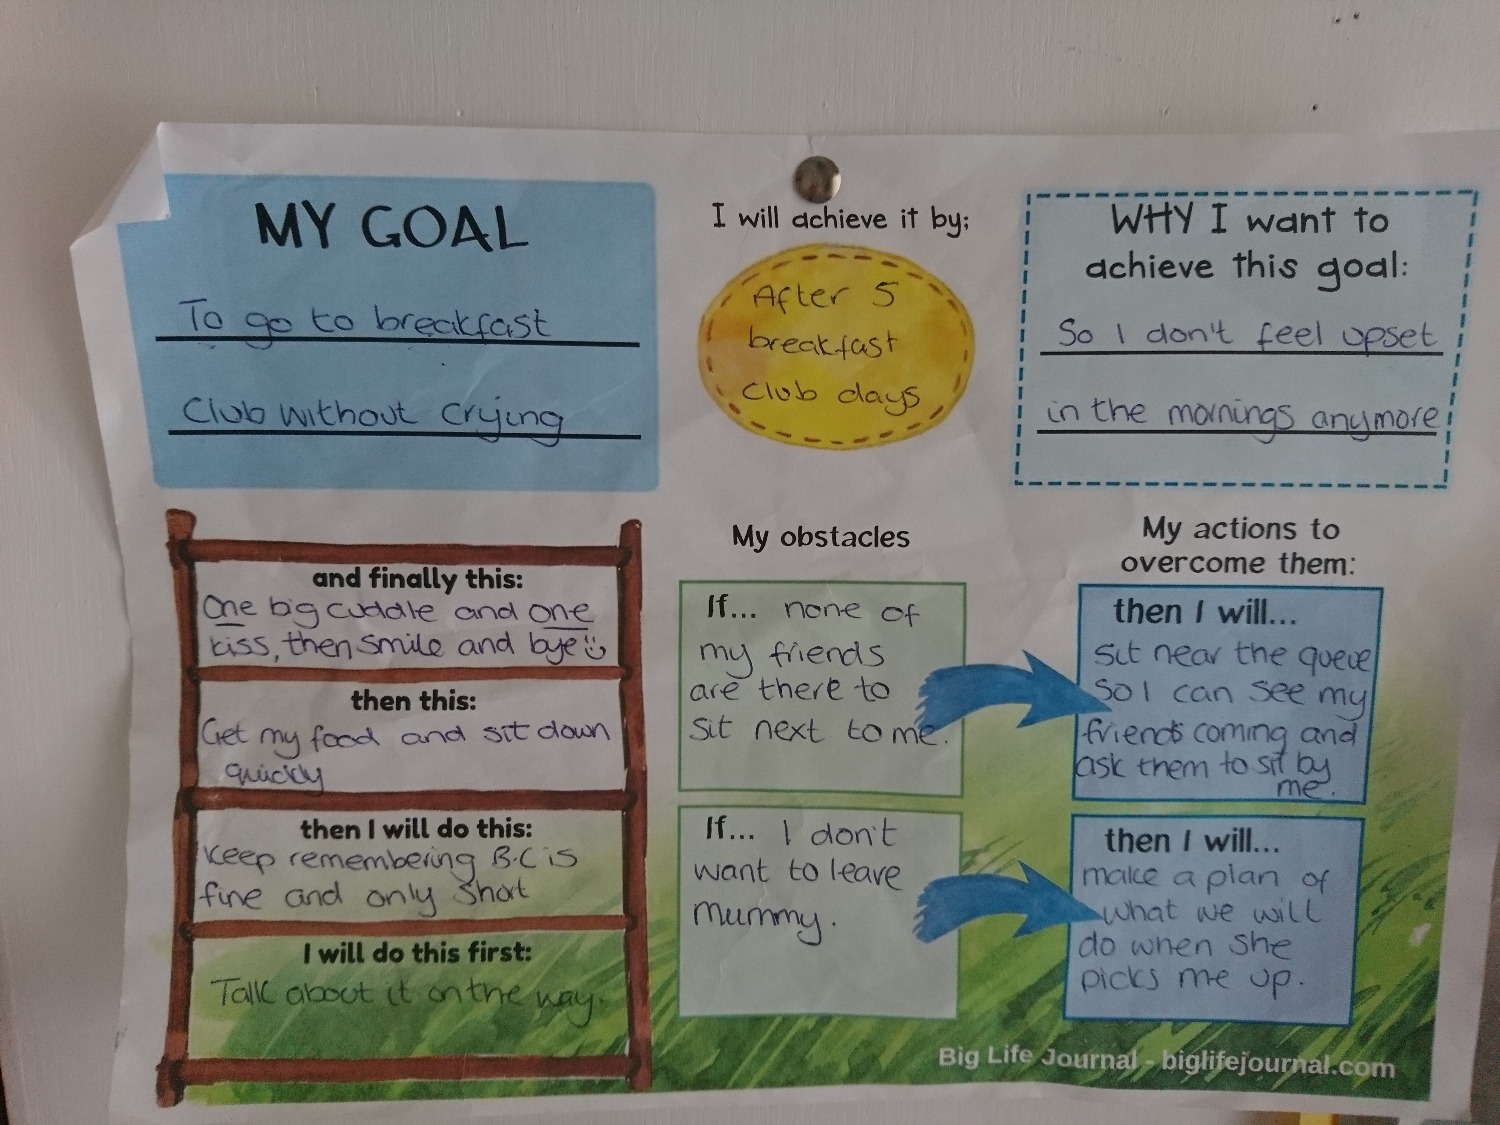 MY GOAL
To go to breakfast
Club without crying
I will achieve it by:
After 5
breakfast
Club days
WHY I want to
achieve this goal:
So I don't feel upset
in the mornings anymore
and finally this:
One big cuddle and one
kiss, then smile and bye
then this:
Get my food and sit down
quickly
then I will do this:
Keep remembering B.C is
fine and only short
I will do this first:
Talk about it on the way.
My obstacles
If... none of
my friends
are there to
sit next to me.
If... I don't
want to leave
Mummy.
My actions to
overcome them:
then I will...
sit near the queue
so I can see my
friends coming and
ask them to sit by
me.
then I will...
make a plan of
what we will
do when she
picks me up.
Big Life Journal - biglifejournal.com